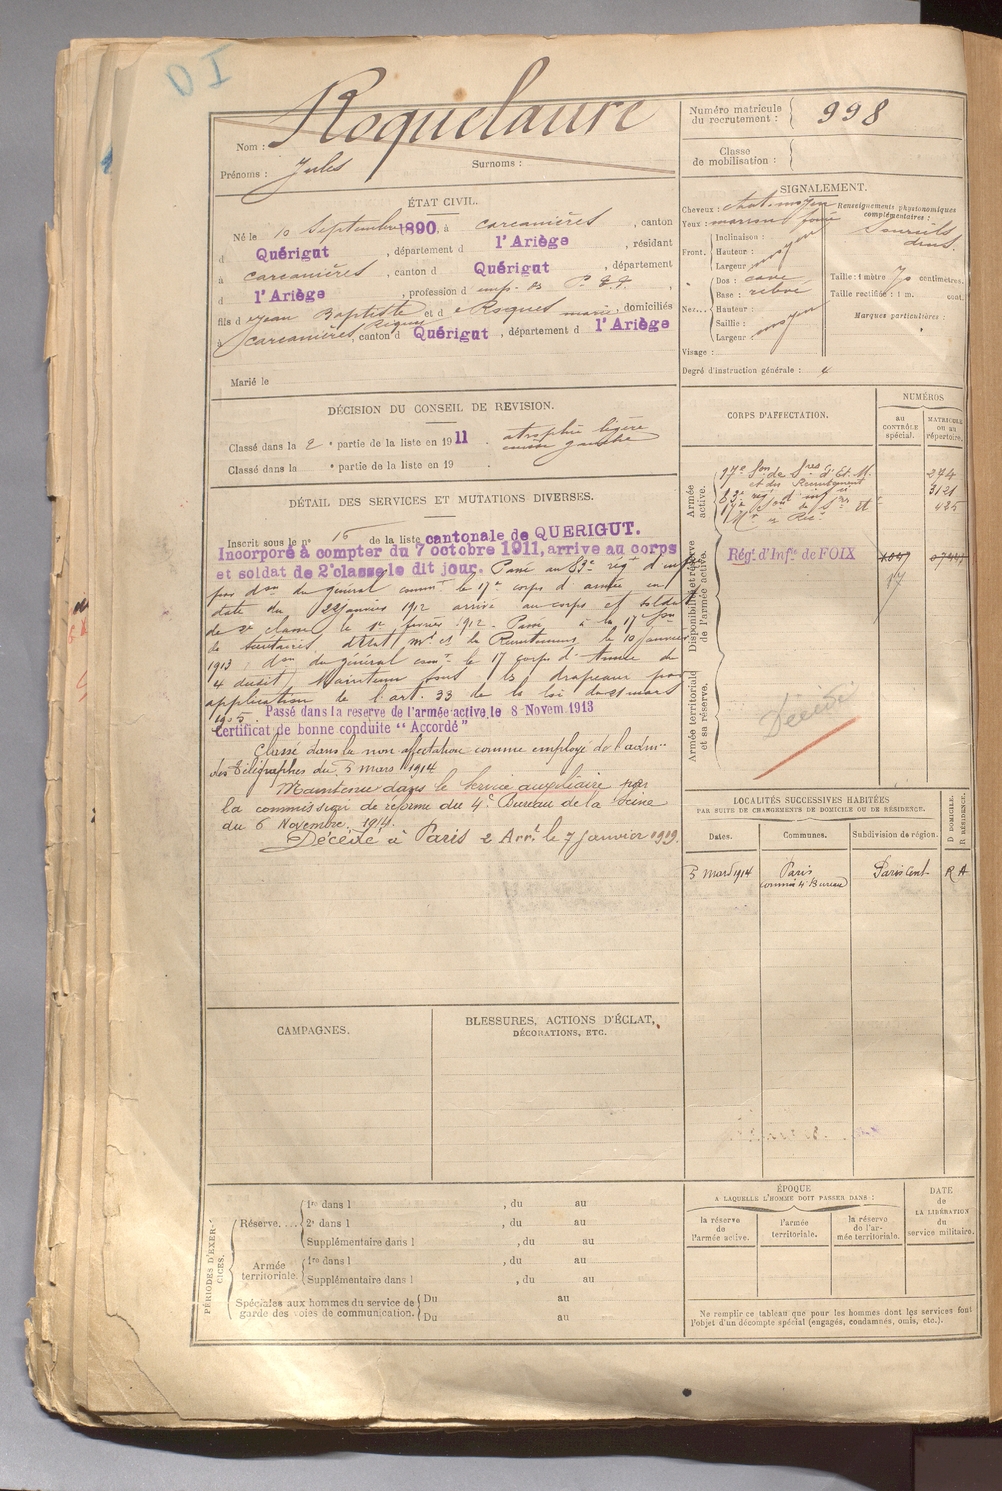 Roquelaure
Nom :
Prénoms : Jules
Surnoms :
Numéro matricule du recrutement : 998
Classe de mobilisation :
ÉTAT CIVIL.
Né le 10 Septembre 1890. à carcanières, canton
d Quérigut, département d l'Ariège, résidant
à carcanières, canton d Quérigut, département
d l'Ariège, profession d emp. des P.T.T.
fils d Jean Baptiste et d Roques marie, domiciliés
à Carcanières, canton d Quérigut, département d l'Ariège
Marié le
SIGNALEMENT.
Cheveux : chat. moyen
Yeux : marron foncé
Front. Inclinaison :
Hauteur : moyen
Largeur :
Nez... Dos : cave
Base : relevé
Hauteur :
Saillie : moyen
Largeur :
Visage :
Renseignements physionomiques complémentaires :
Sourcils
drus.
Taille : 1 mètre 70 centimètres.
Taille rectifiée : 1 m. cent.
Marques particulières :
Degré d'instruction générale : 4
DÉCISION DU CONSEIL DE REVISION.
Classé dans la 2e partie de la liste en 1911. atrophie légère
cuisse gauche
Classé dans la e partie de la liste en 19 .
DÉTAIL DES SERVICES ET MUTATIONS DIVERSES.
Inscrit sous le n° 16 de la liste cantonale de QUERIGUT.
Incorporé à compter du 7 octobre 1911, arrive au corps
et soldat de 2e classe le dit jour. Passé au 83e rég d'inf
par don du général commt le 17e corps d'armée en
date du 22 janvier 1912 arrivé au corps et soldat
de 2e classe le 1er février 1912. Passé à la 17e Son
de secrétaires d'Etat mor et du Recrutement le 10 janvier
1913, don du général comt le 17 corps d'Armée du
4 dudit. Maintenu sous les drapeaux par
application de l'art. 33 de la loi du 21 mars
1905. Passé dans la reserve de l'armée active, le 8 Novem. 1913
Certificat de bonne conduite "Accordé"
Classé dans la non affectation comme employé de l'admon
des Télégraphes du 3 mars 1914
Maintenu dans le Service auxiliaire par
la commission de réforme du 4e Bureau de la Seine
du 6 Novembre 1914.
Décédé à Paris 2 Arrt le 7 Janvier 1919.
CORPS D'AFFECTATION.
NUMÉROS
au CONTRÔLE spécial.
MATRICULE ou au répertoire.
Armée active.
17e Son de Sres d'Et. M.
et du Recrutement 274
83e rég d'infie 3121
17e Son de Sres Et
Mr et Rect 425
Disponibilité et réserve de l'armée active.
Régt. d'Infie. de FOIX
Armée territoriale et sa réserve.
Décédé
LOCALITÉS SUCCESSIVES HABITÉES
PAR SUITE DE CHANGEMENTS DE DOMICILE OU DE RÉSIDENCE.
Dates. Communes. Subdivision de région. D DOMICILE. R RÉSIDENCE.
3 mars 1914 Paris Paris Cent. R A
commis 4e Bureau
CAMPAGNES.
BLESSURES, ACTIONS D'ÉCLAT,
DÉCORATIONS, ETC.
PÉRIODES D'EXERCICES.
Réserve....
1re dans l , du au
2e dans l , du au
Supplémentaire dans l , du au
Armée territoriale.
1re dans l , du au
Supplémentaire dans l , du au
Spéciales aux hommes du service de garde des voies de communication.
Du au
Du au
ÉPOQUE
A LAQUELLE L'HOMME DOIT PASSER DANS :
la réserve de l'armée active.
l'armée territoriale.
la réserve de l'armée territoriale.
DATE de LA LIBÉRATION du service militaire.
Ne remplir ce tableau que pour les hommes dont les services font
l'objet d'un décompte spécial (engagés, condamnés, omis, etc.).